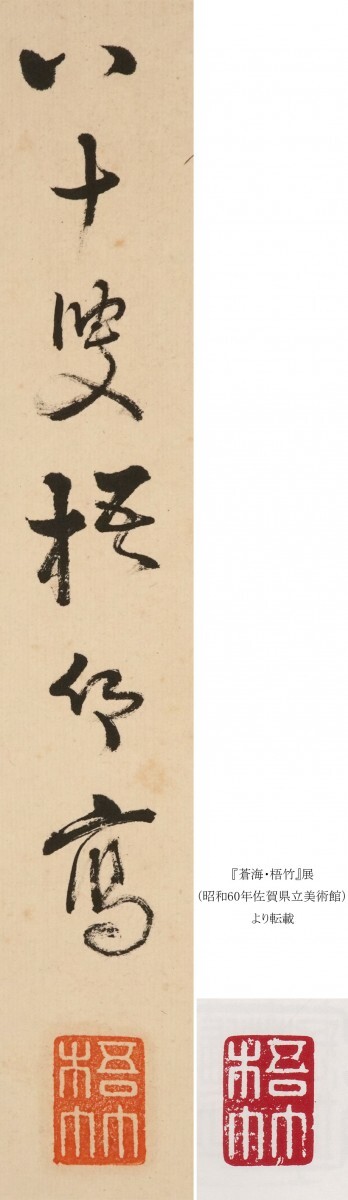 八十叟梧竹
梧竹
『蒼海・梧竹』展
(昭和60年佐賀県立美術館)
より転載
梧竹